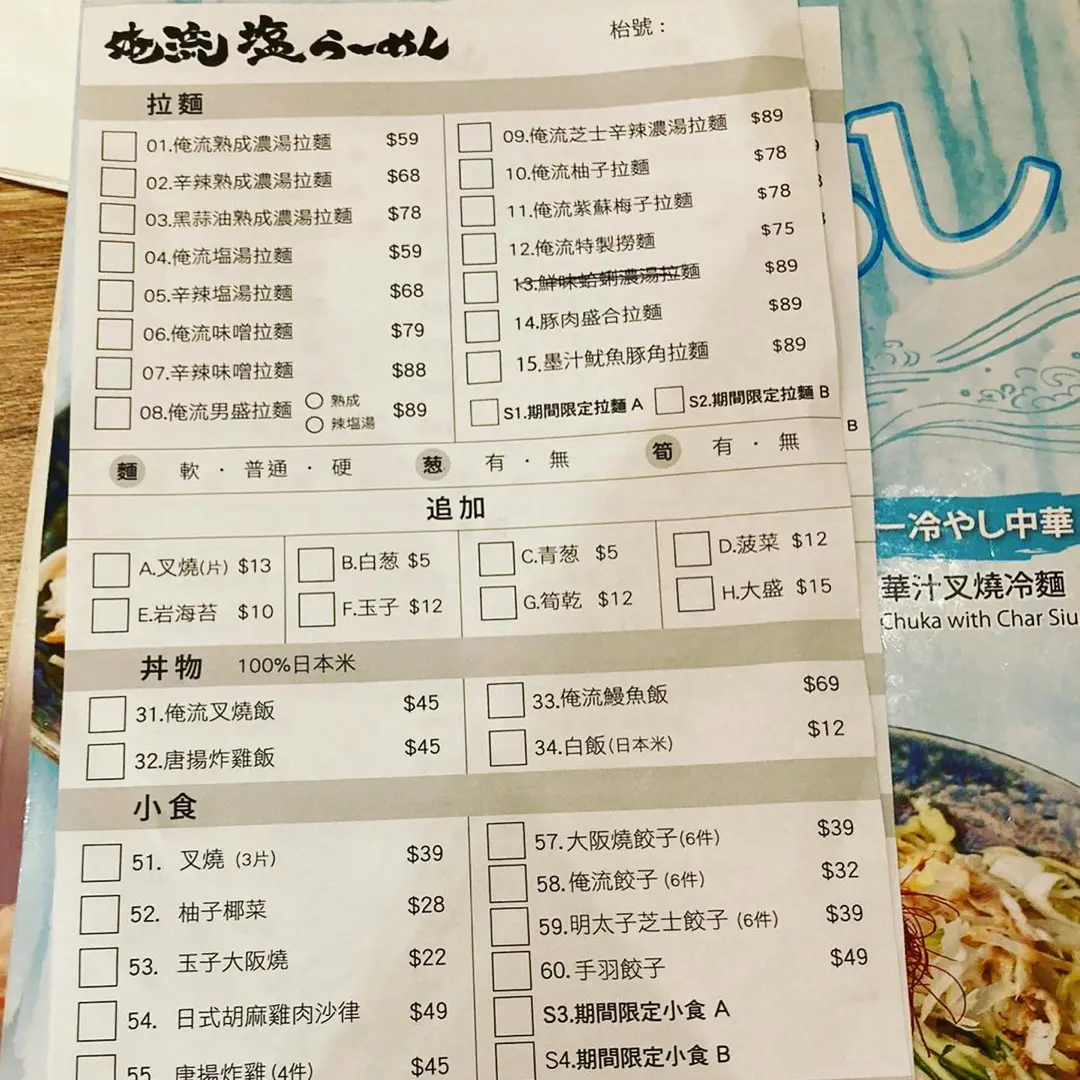 俺流塩らーめん
枱號：
拉麵
01.俺流熟成濃湯拉麵 $59
02.辛辣熟成濃湯拉麵 $68
03.黑蒜油熟成濃湯拉麵 $78
04.俺流塩湯拉麵 $59
05.辛辣塩湯拉麵 $68
06.俺流味噌拉麵 $79
07.辛辣味噌拉麵 $88
08.俺流男盛拉麵 $89
熟成
辣塩湯
09.俺流芝士辛辣濃湯拉麵 $89
10.俺流柚子拉麵 $78
11.俺流紫蘇梅子拉麵 $78
12.俺流特製撈麵 $75
13.鮮味蛤蜊濃湯拉麵 $89
14.豚肉盛合拉麵 $89
15.墨汁魷魚豚角拉麵 $89
S1.期間限定拉麵 A
S2.期間限定拉麵 B
麵 軟 · 普通 · 硬
葱 有 · 無
筍 有 · 無
追加
A.叉燒(片) $13
B.白葱 $5
C.青葱 $5
D.菠菜 $12
E.岩海苔 $10
F.玉子 $12
G.筍乾 $12
H.大盛 $15
丼物 100%日本米
31.俺流叉燒飯 $45
32.唐揚炸雞飯 $45
33.俺流鰻魚飯 $69
34.白飯(日本米) $12
小食
51. 叉燒 (3片) $39
52. 柚子椰菜 $28
53. 玉子大阪燒 $22
54. 日式胡麻雞肉沙律 $49
55. 唐揚炸雞 (4件) $45
57.大阪燒餃子(6件) $39
58.俺流餃子 (6件) $32
59.明太子芝士餃子 (6件) $39
60.手羽餃子 $49
S3.期間限定小食 A
S4.期間限定小食 B
B
し
ー冷やし中華
華汁叉燒冷麵
Chuka with Char Siu